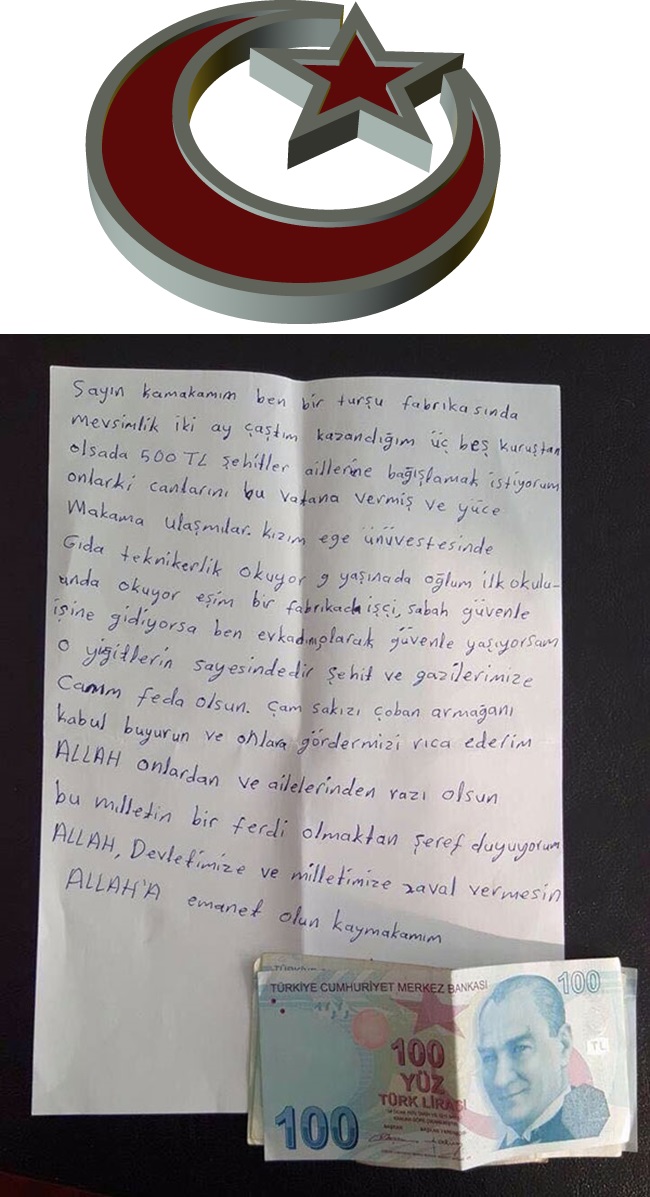 Sayın kamakamım ben bir turşu fabrikasında
mevsimlik iki ay çaştım kazandığım üç beş kuruştan
olsada 500 TL şehitler aillerine bağışlamak istiyorum
onlarki canlarını bu vatana vermiş ve yüce
Makama ulaşmılar. kızım ege ünüvestesinde
Gıda teknikerlik okuyor 9 yaşınada oğlum ilk okulu-
unda okuyor eşim bir fabrikada işçi, sabah güvenle
işine gidiyorsa ben evkadınıolarak güvenle yaşıyorsam
O yiğitlerin sayesindedir şehit ve gazilerimize
Canım feda olsun. çam sakızı çoban armağanı
kabul buyurun ve onlara gördermizi rica ederim
ALLAH onlardan ve ailelerinden razı olsun
bu milletin bir ferdi olmaktan şeref duyuyorum
ALLAH, Devletimize ve milletimize zaval vermesin
ALLAH'A emanet olun kaymakamım
TÜRKİYE CUMHURİYET MERKEZ BANKASI
100
TL
100
YÜZ
TÜRK LİRASI
100